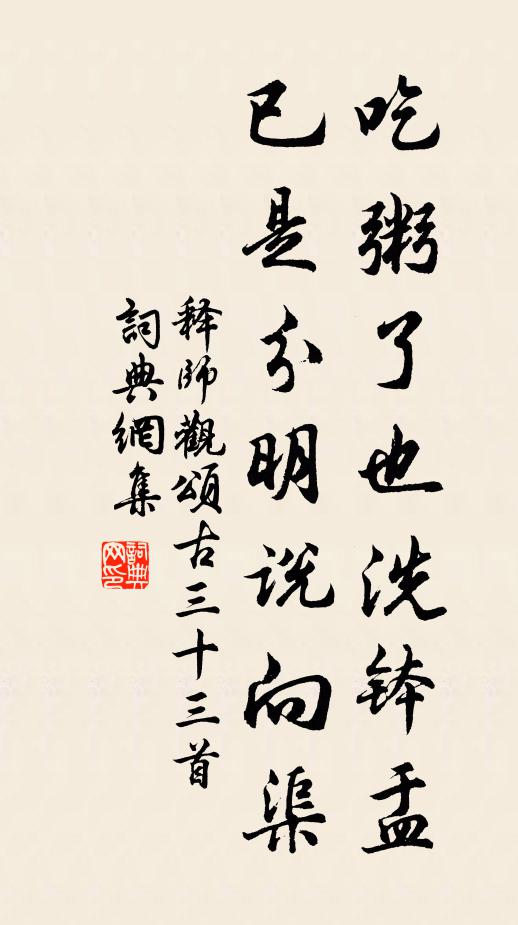 吃粥了也洗鉢盂
已是分明説向渠
释師觀頌古三十三首
詞典網集
詞典網印